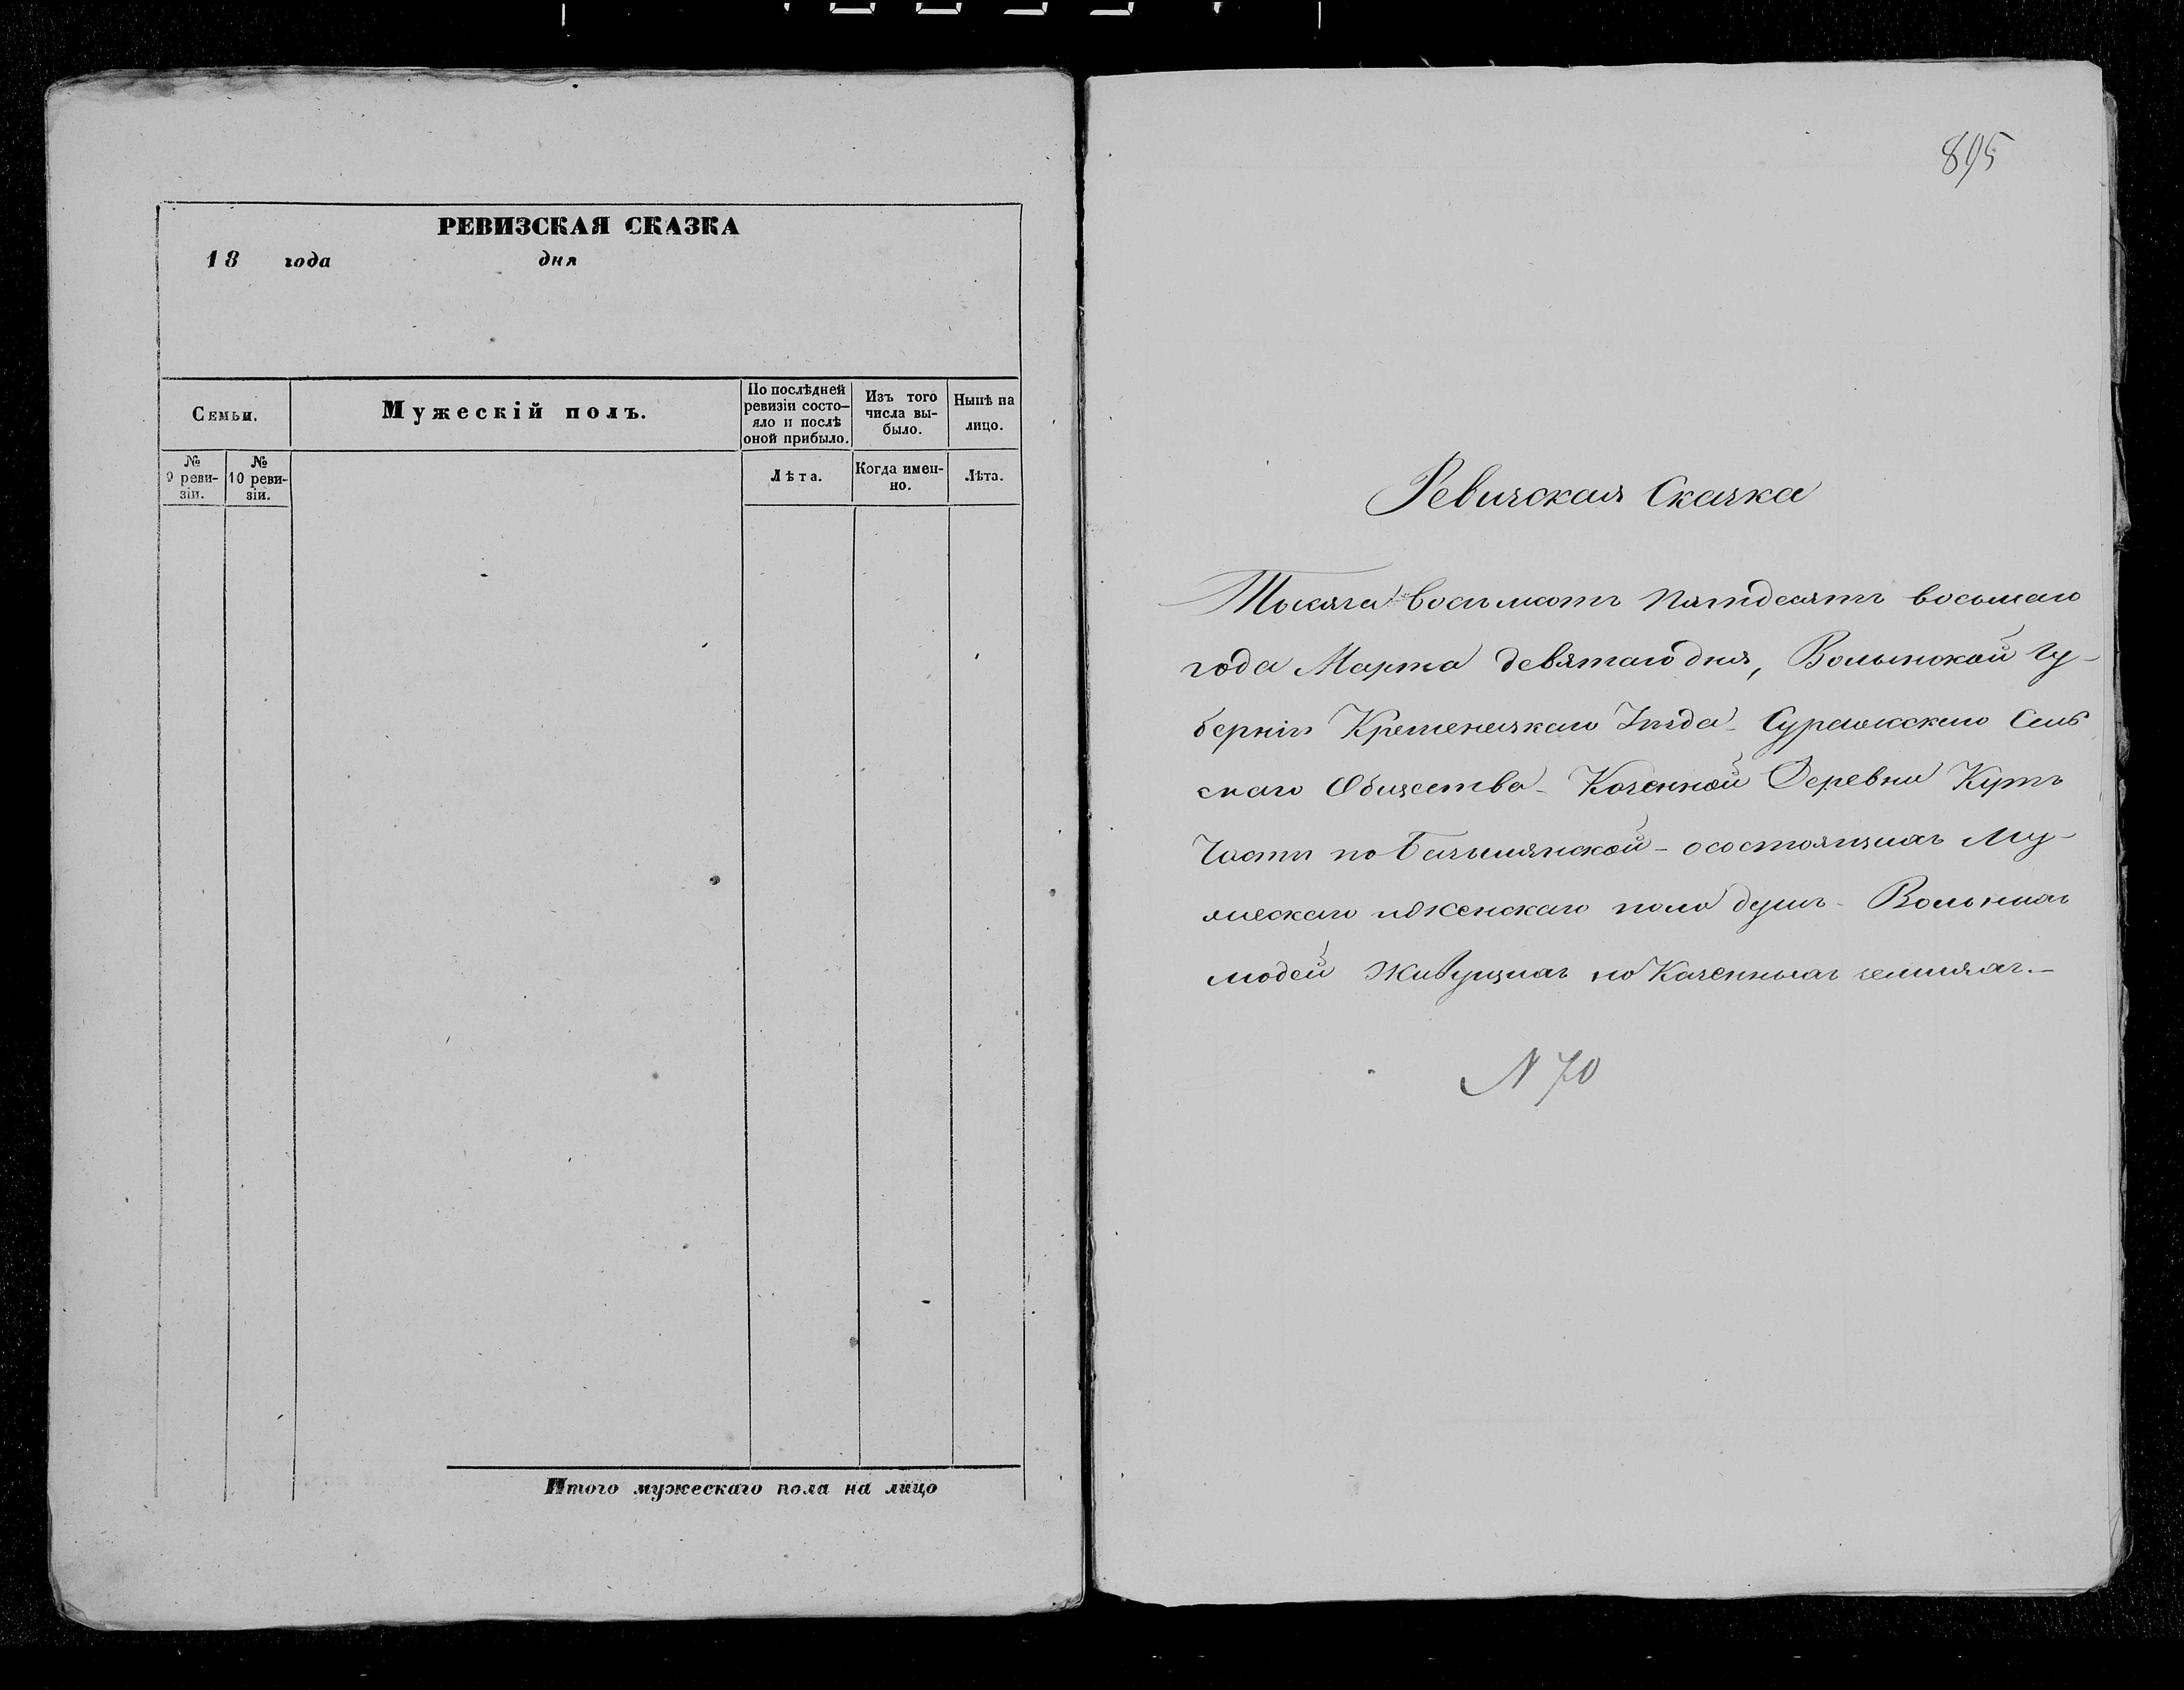 РЕВИЗСКАЯ СКАЗКА
18 года дня
Семьи.
Мужескій полъ.
По послѣдней
ревизіи состо-
яло и послѣ
оной прибыло.
Изъ того
числа вы-
было.
Нынѣ на
лицо.
№
9 реви-
зіи.
№
10 реви-
зіи.
Лѣта.
Когда имен-
но.
Лѣта.
Итого мужескаго пола на лицо
895
Ревизская Сказка
Тысяча восемьсотъ пятдесятъ восьмаго
года Марта девятаго дня, Волынской Гу-
берніи Кременецкаго Уѣзда Суражскаго Сель
скаго Общества - Казенной Деревни Кутъ
Части по Базилянской - о состоящихъ Му-
жескаго и Женскаго пола душъ - Вольныхъ
людей Живущихъ по Казеннымъ земляхъ.-
N 70